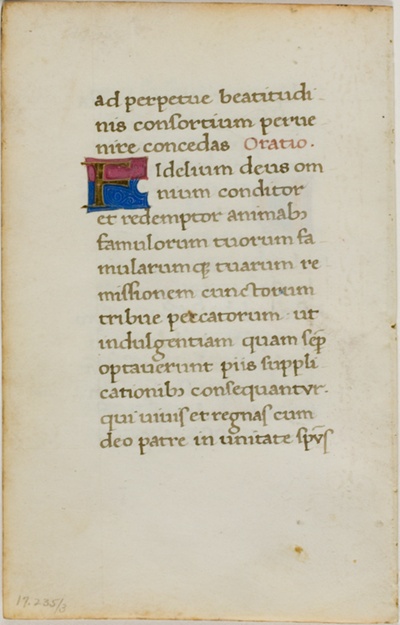 ad perpetue beatitudi
nis consortium perue
nire concedas Oratio.
FIdelium deus om
nium conditor
et redemptor animabꝫ
famulorum tuorum fa
mularumqꝫ tuarum re
missionem cunctorum
tribue peccatorum · ut
indulgentiam quam sēp
optauerunt piis suppli
cationibꝫ consequantur.
qui uiuis et regnas cum
deo patre in unitate sp̄ūs
17.235/3